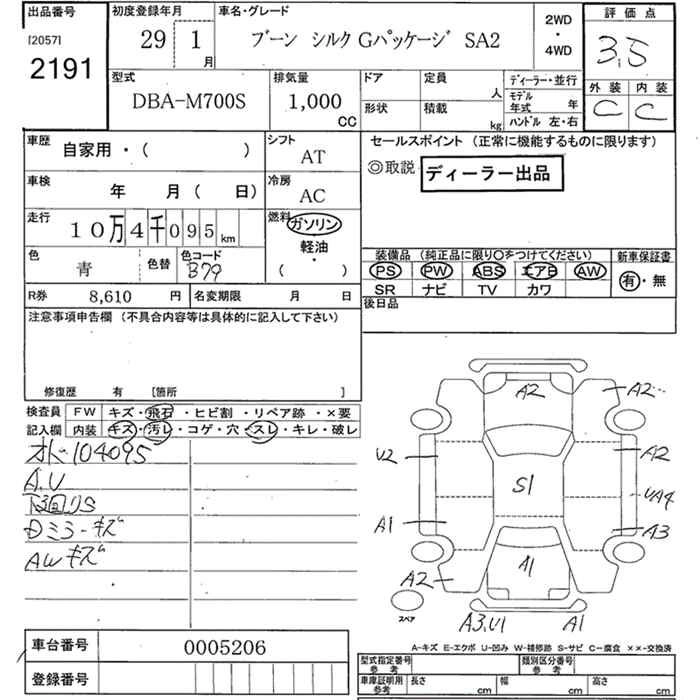 出品番号 初度登録年月 車名・グレード 2WD ・ 4WD 評価点
[2057] 2191 29年 1月 ブーン シルク Gパッケージ SA2 3.5
型式 排気量 ドア 定員 人 ディーラー・並行 外装 内装
DBA-M700S 1,000 CC 形状 積載 kg モデル年式 年 C C
ハンドル 左・右
車歴 自家用・( ) シフト AT セールスポイント (正常に機能するものに限ります)
◎取説 ディーラー出品
車検 年 月 ( 日) 冷房 AC
走行 10万4千095km 燃料 ガソリン
軽油
・
( )
色 青 色替 色コード B79 装備品 (純正品に限り○をつけてください) 新車保証書
PS PW ABS エアB AW 有・無
SR ナビ TV カワ
R券 8,610 円 名変期限 月 日 後日品
注意事項申告欄 (不具合内容等は具体的に記入して下さい)
修復歴 有 [箇所 ]
検査員 FW キズ・飛石・ヒビ割・リペア跡・×要
記入欄 内装 キズ・汚レ・コゲ・穴・スレ・キレ・破レ
オド104095
A.U
下回りS
Dミラーキズ
AWキズ
A2 A2
U2 A2
S1 UA4
A1 A3
A2 A1
スペア A3.U1 A1
A-キズ E-エクボ U-凹み W-補修跡 S-サビ C-腐食 ××-交換済
車台番号 0005206
登録番号
型式指定番号 参考 類別区分番号 参考
車庫証明用 参考 長さ cm 幅 cm 高さ cm